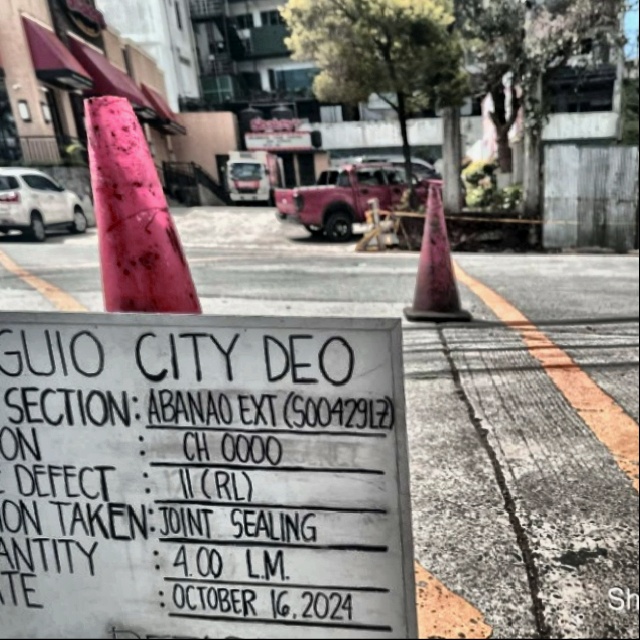 GUIO CITY DEO
SECTION: ABANAO EXT (S00429LZ)
ON : CH 0000
DEFECT : 11 (RL)
ION TAKEN: JOINT SEALING
ANTITY : 4.00 L.M.
TE : OCTOBER 16, 2024
Sh